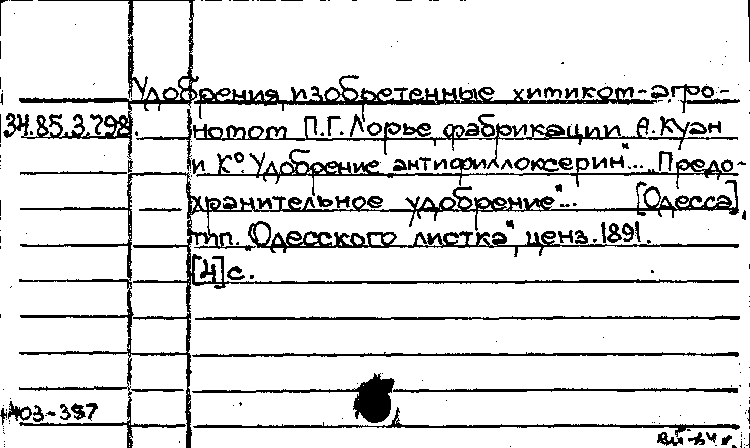 Удобрения, изобретенные химиком-агро-
34.85.3.798. номом П.Г. Лорье, фабрикации А. Куан
и К°. „Удобрение антифиллоксерин"... „Предо-
хранительное удобрение"... [Одесса],
тип. „Одесского листка", ценз. 1891.
[4] с.
403-387